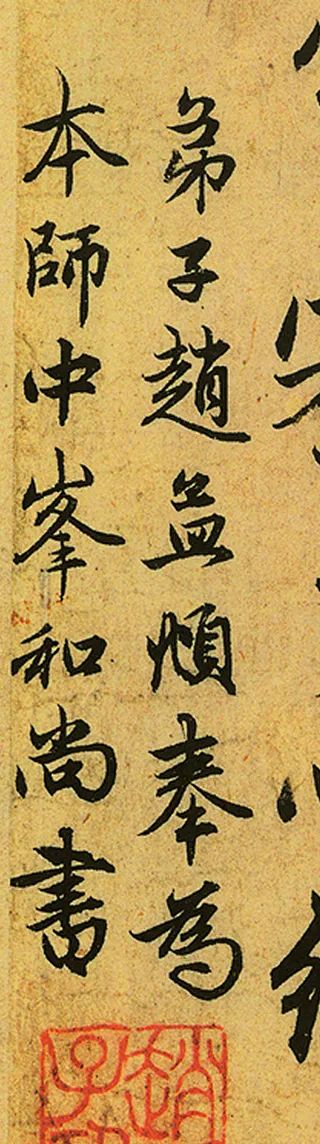 弟子趙孟頫奉為
本師中峯和尚書
趙
子